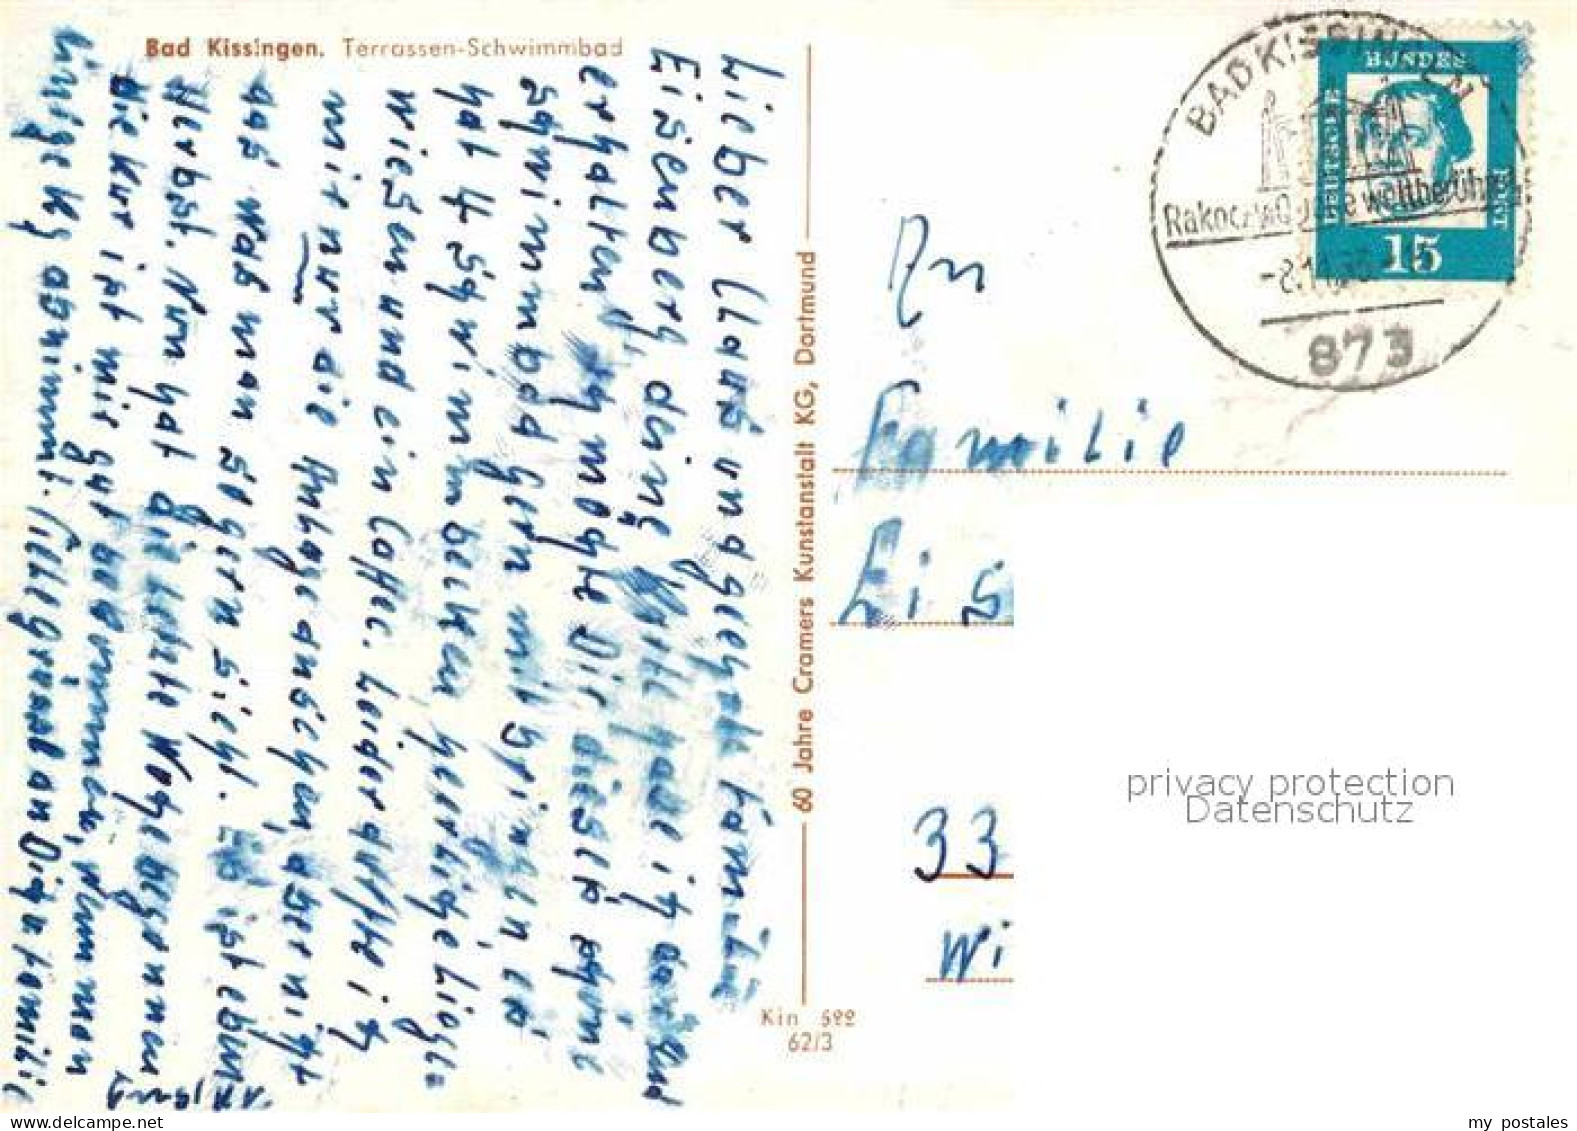 Bad Kissingen. Terrassen-Schwimmbad
Lieber Claus und geehrte Fam-
Eisenberg, deine Karte habe ich dankend
erhalten, ich möchte Dir dieses schöne
Schwimmbad gern mitbringen es
hat 4 Schwimmbecken, herrliche Liege-
wiesen und ein Caffee. Leider durfte ich
mir nur die Anlage ansehen, aber nicht
das was man so gern sieht. Es ist eben
Herbst. Nun hat die letzte Woche begonnen
die Kur ist mir gut bekommen, wenn man
einige Kg abnimmt. Viele Grüsse an Dich u Familie
60 Jahre Cramers Kunstanstalt KG, Dortmund
Kin 522
62/3
BAD KISSINGEN
Rakoczy-Quelle weltberühmt
873
DEUTSCHE
BUNDES
POST
15
An
Familie
Eis
33
Wi
privacy protection
Datenschutz
my postales